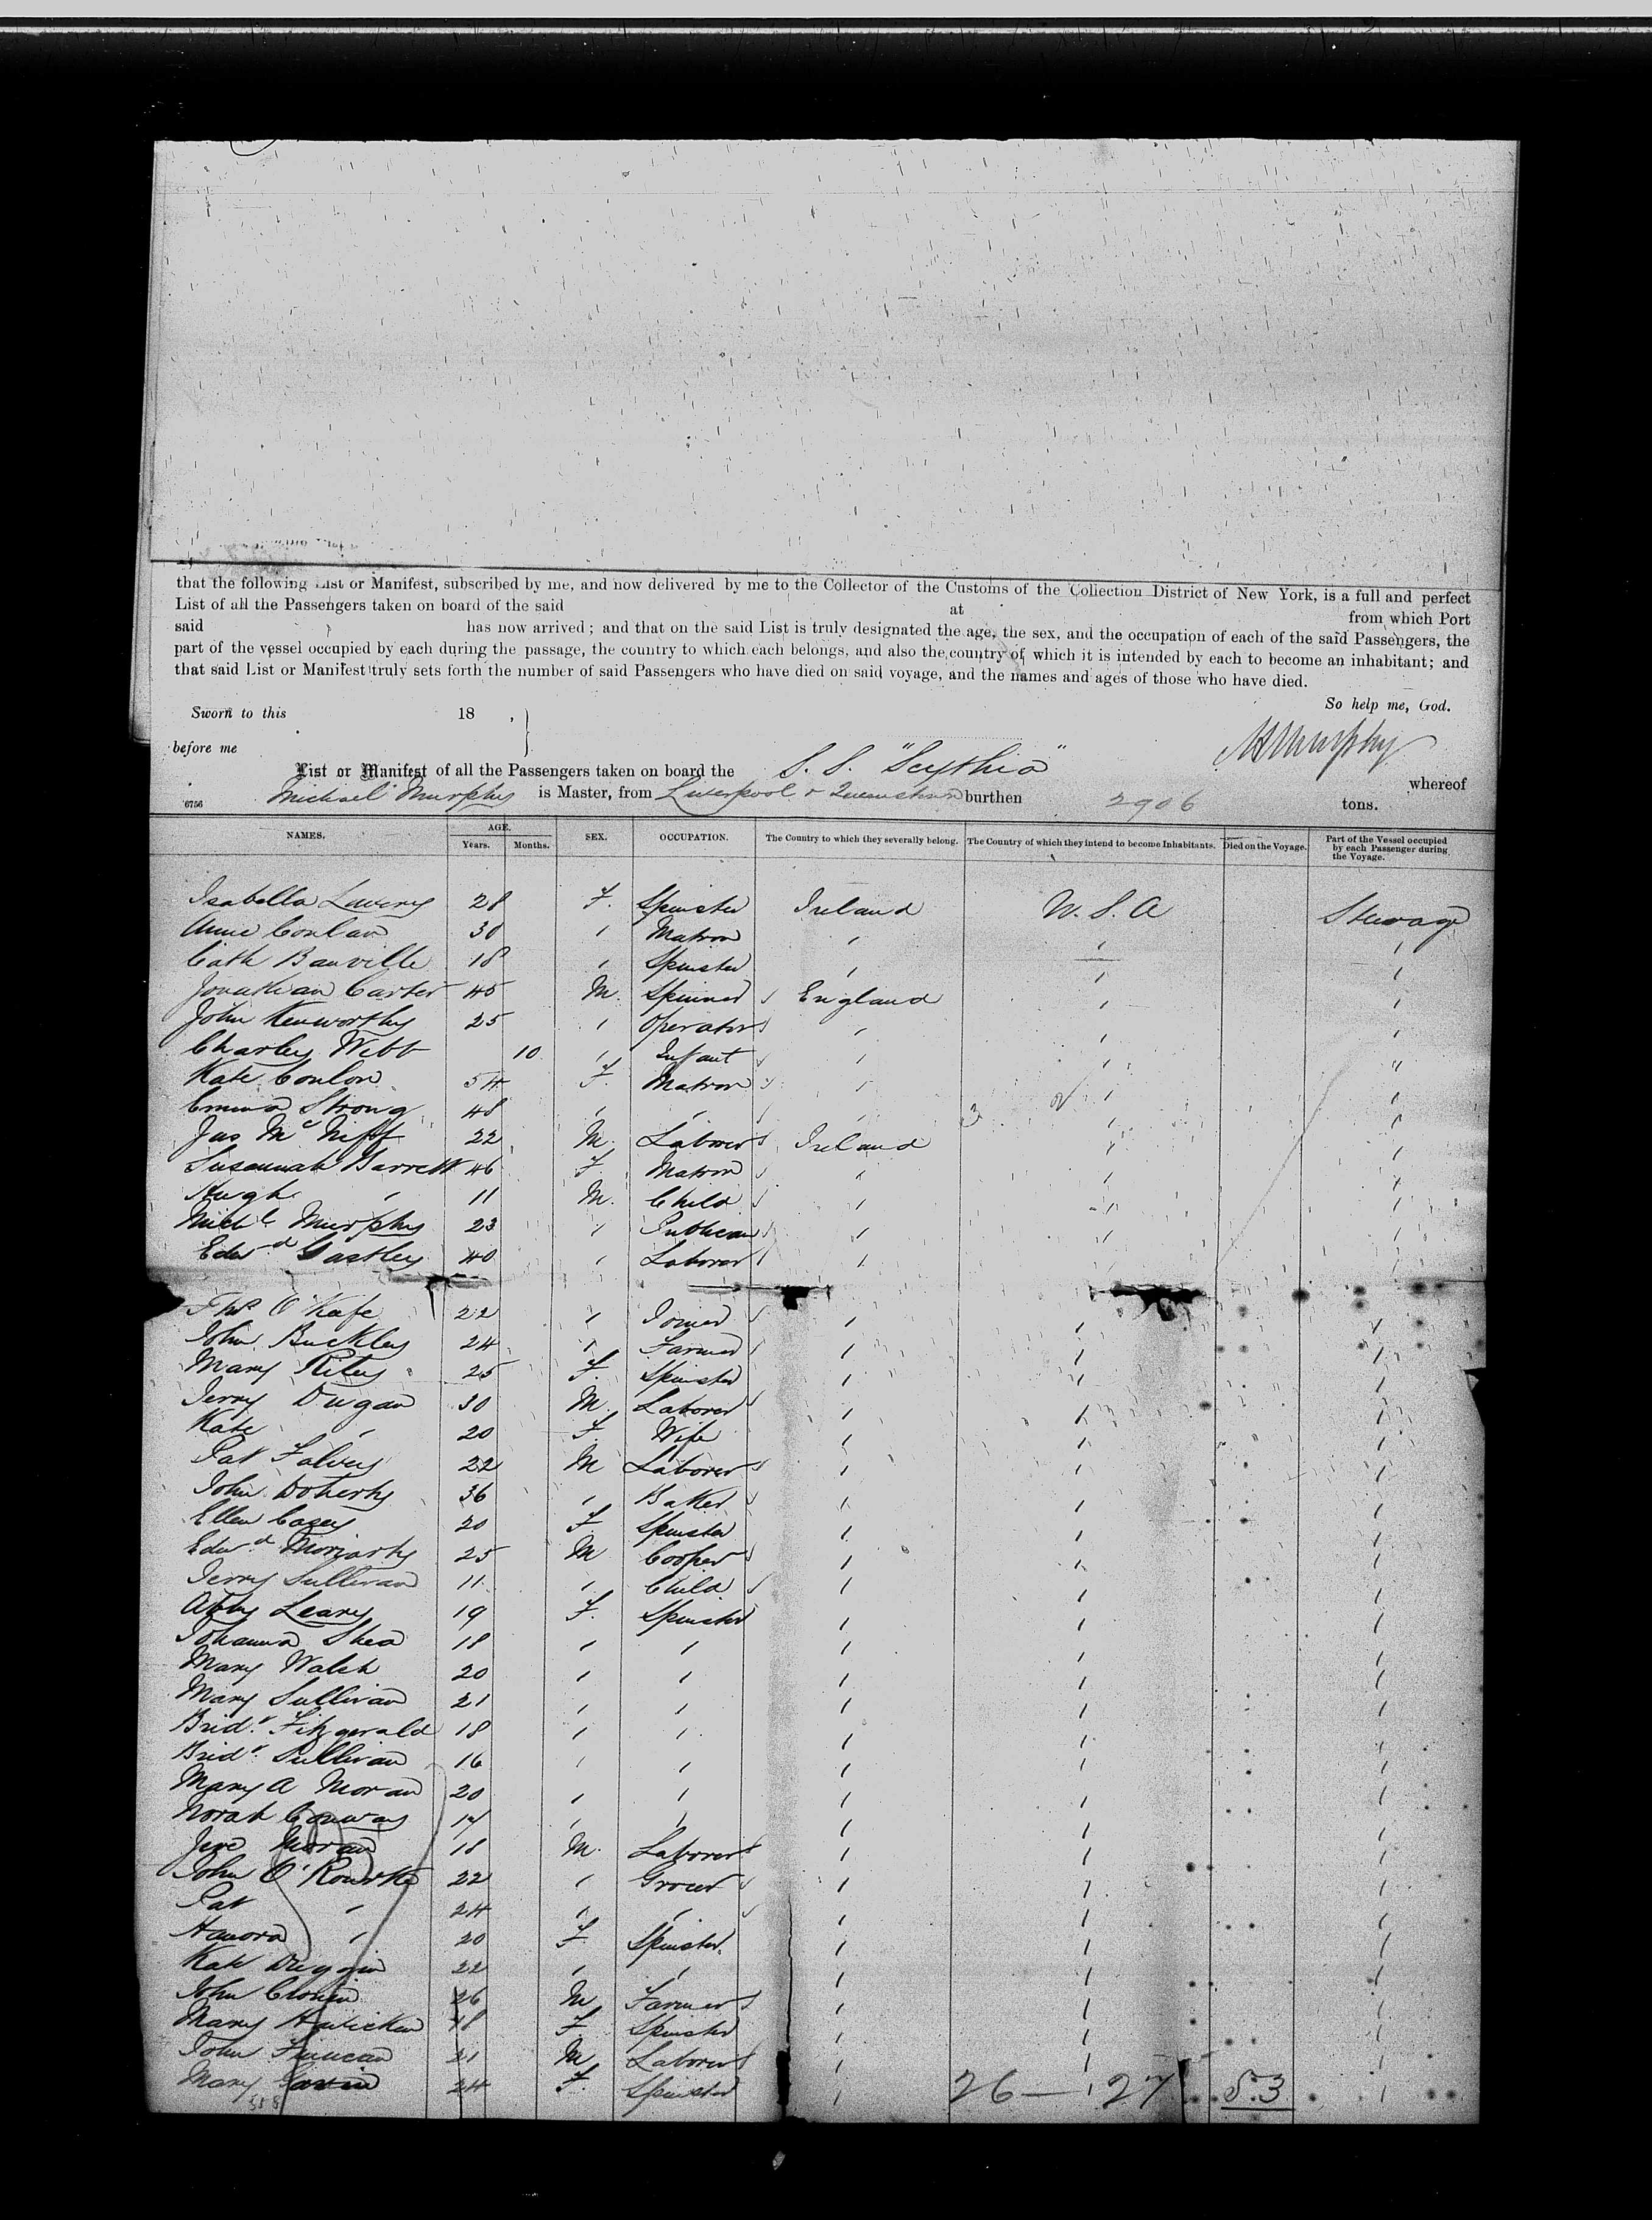 that the following List or Manifest, subscribed by me, and now delivered by me to the Collector of the Customs of the Collection District of New York, is a full and perfect
List of all the Passengers taken on board of the said at from which Port
said has now arrived; and that on the said List is truly designated the age, the sex, and the occupation of each of the said Passengers, the
part of the vessel occupied by each during the passage, the country to which each belongs, and also the country of which it is intended by each to become an inhabitant; and
that said List or Manifest truly sets forth the number of said Passengers who have died on said voyage, and the names and ages of those who have died.
So help me, God.
Sworn to this 18 ,
before me
Murphy
List or Manifest of all the Passengers taken on board the S. S. "Scythia" whereof
6756 Michael Murphy is Master, from Liverpool & Queenstown burthen 2906 tons.
NAMES. AGE. Years. Months. SEX. OCCUPATION. The Country to which they severally belong. The Country of which they intend to become Inhabitants. Died on the Voyage. Part of the Vessel occupied by each Passenger during the Voyage.
Isabella Lavery 28 F. Spinster Ireland U. S. A Steerage
Annie Conlan 30 " Matron " " "
Cath Banville 18 " Spinster " " "
Jonathan Carter 45 M. Spinner England " "
John Kenworthy 25 " Operator " " "
Charley Webb 10 " Infant " " "
Kate Conlon 54 F. Matron " " "
Emma Strong 48 " " " " "
Jas McNiff 22 M. Laborer Ireland " "
Susannah Barrett 46 F. Matron " " "
Hugh " 11 M. Child " " "
Michl Murphy 23 " Publican " " "
Edwd Gastley 40 " Laborer " " "
Thos O'Kafe 22 " Joiner " " "
John Buckley 24 " Farmer " " "
Mary Riley 25 F. Spinster " " "
Jerry Dugan 30 M. Laborer " " "
Kate " 20 F. Wife " " "
Pat Falvey 22 M Laborer " " "
John Doherty 36 " Baker " " "
Ellen Casey 20 F. Spinster " " "
Edwd Moriarty 25 M Cooper " " "
Jerry Sullivan 11 " Child " " "
Abby Leary 19 F. Spinster " " "
Johanna Shea 18 " " " " "
Mary Walsh 20 " " " " "
Mary Sullivan 21 " " " " "
Bridt Fitzgerald 18 " " " " "
Bridt Sullivan 16 " " " " "
Mary A Moran 20 " " " " "
Norah Conway 17 " " " " "
Jere Moran 18 M. Laborer " " "
John O'Rourke 22 " Grocer " " "
Pat " 24 " " " " "
Hanora " 20 F. Spinster " " "
Kate Duggin 22 " " " " "
John Cronin 26 M Farmer " " "
Mary 18 F. Spinster " " "
John Finucan 21 M Laborer " " "
Mary 24 F. Spinster " " "
26 — 27 53